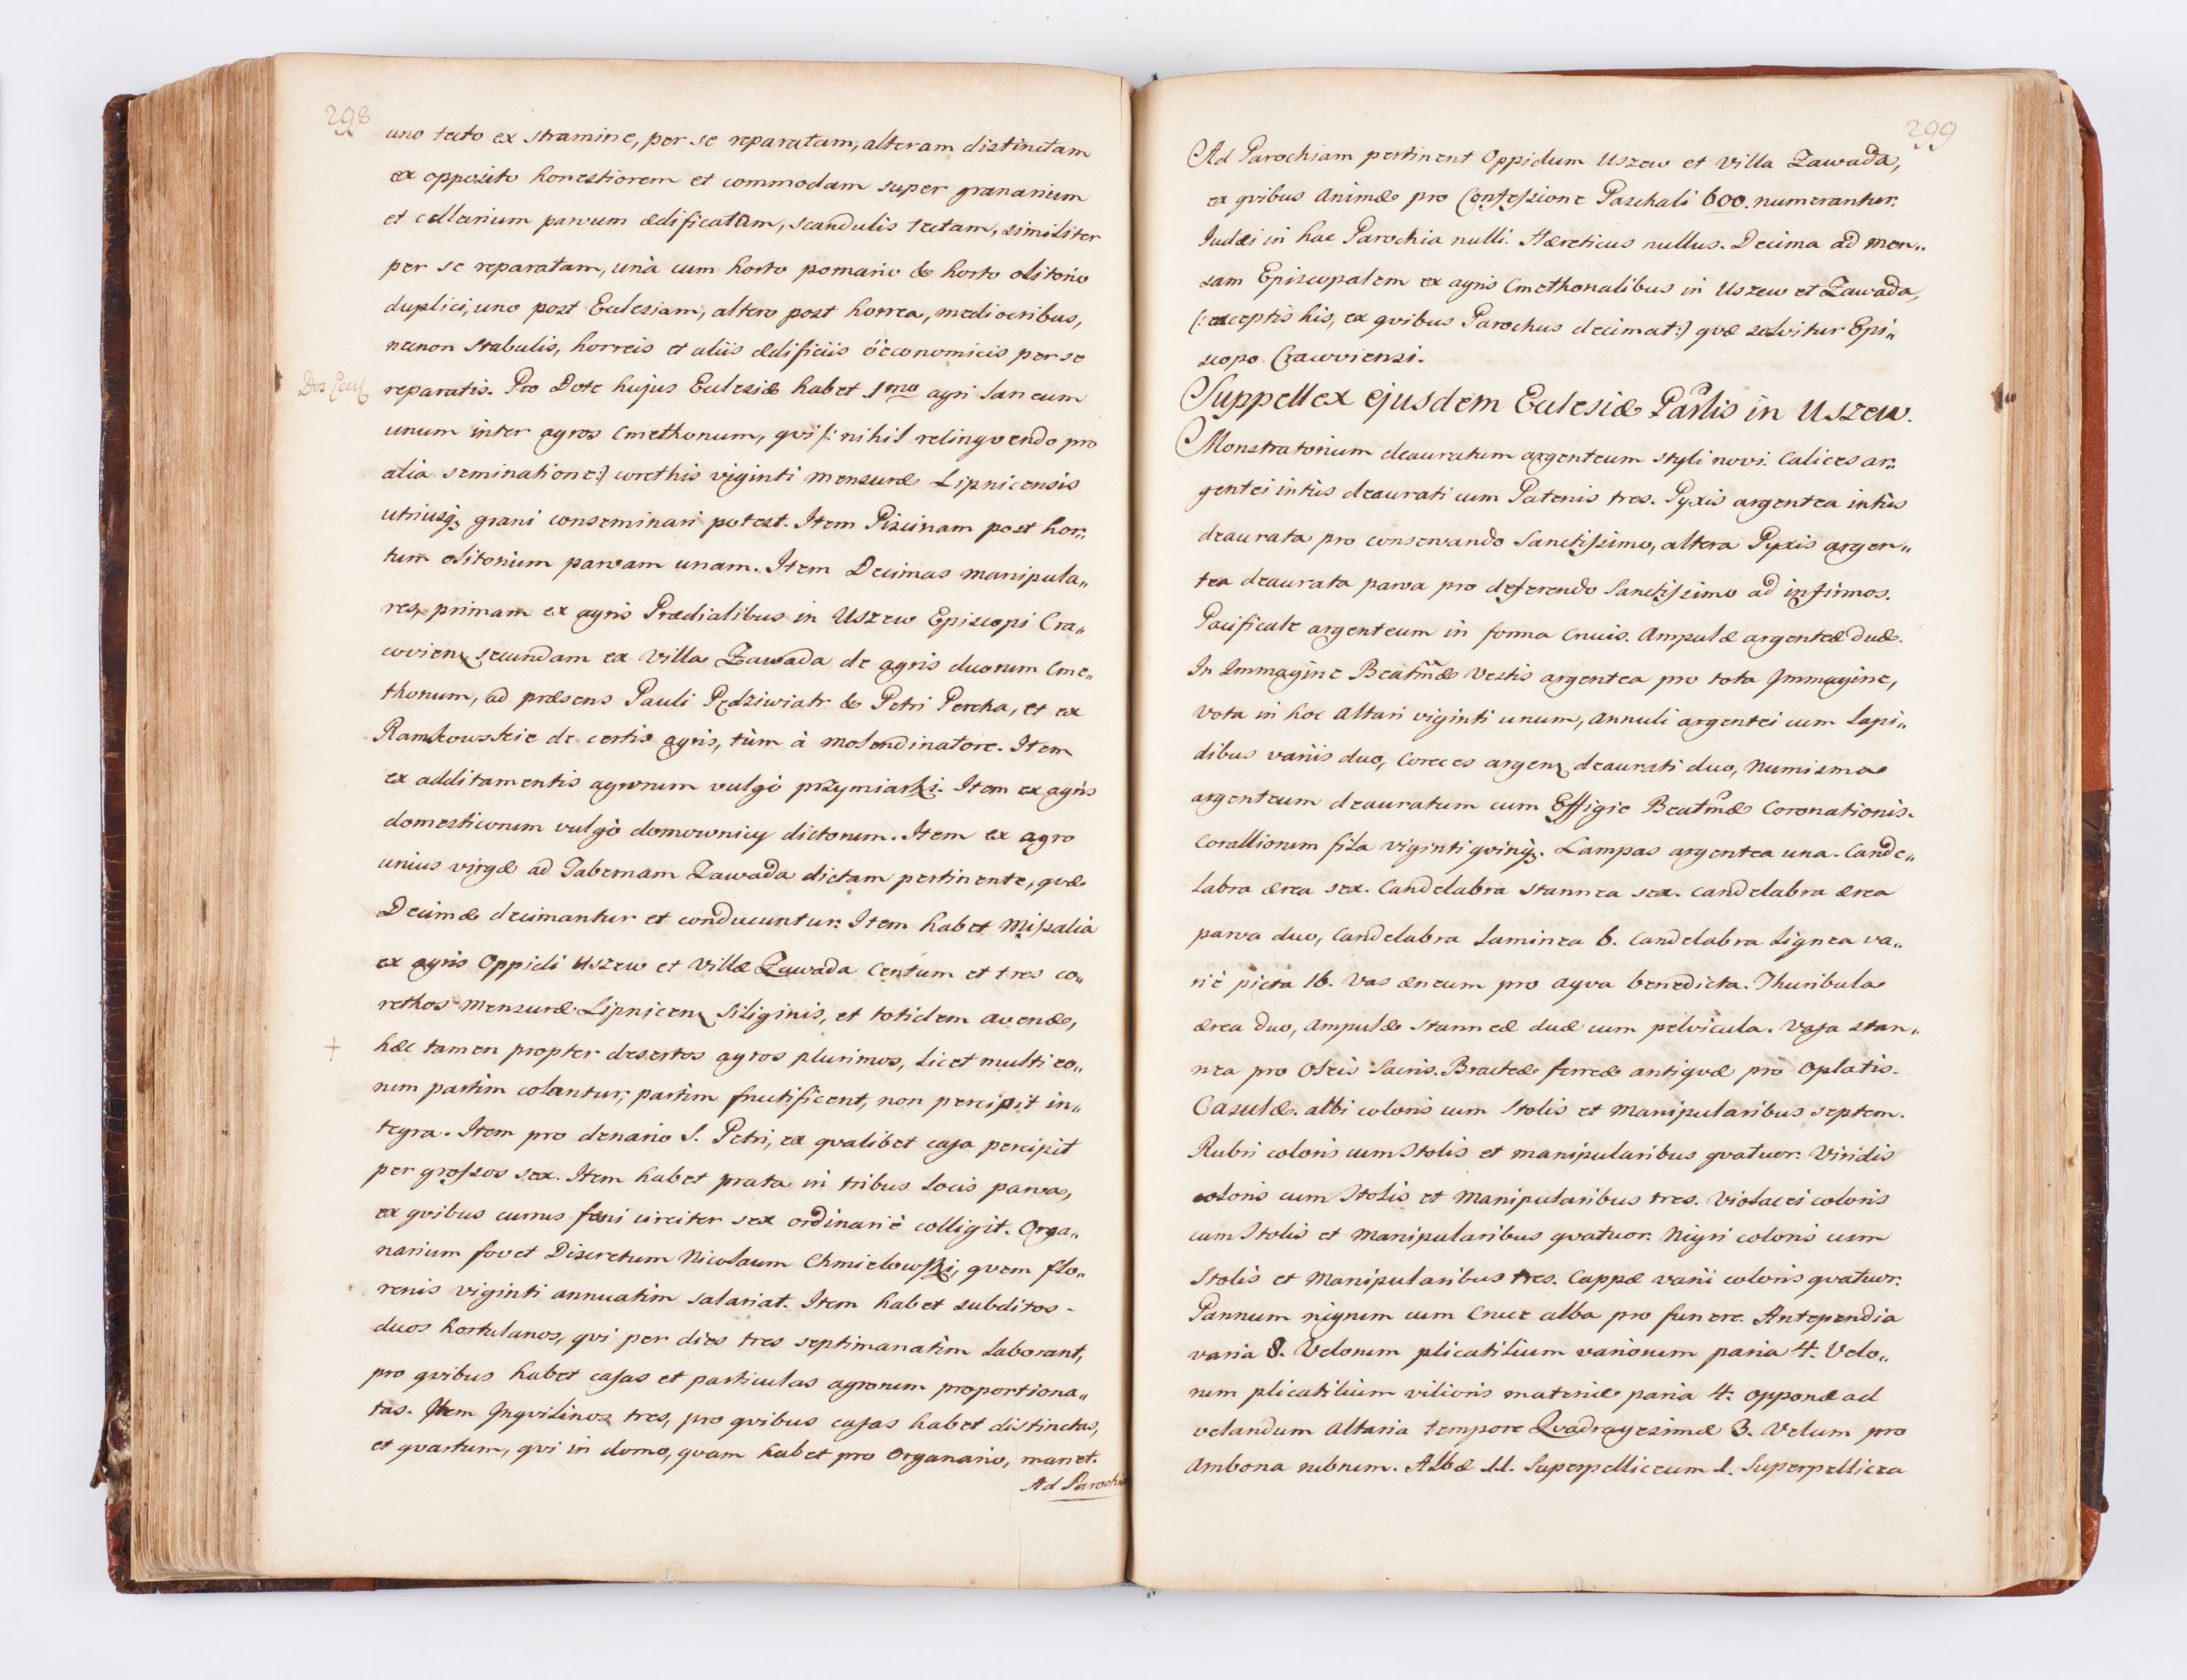 298
uno tecto ex stramine, per se reparatam, alteram distinctam
ex opposito honestiorem et commodam super granarium
et cellarium parvum ædificatam, scandulis tectam, similiter
per se reparatam, unà cum horto pomario & horto olitorio
duplici, uno post Ecclesiam, altero post horrea, mediocribus,
necnon stabulis, horreis et aliis ædificiis oeconomicis per se
Dos Eccl
reparatis. Pro Dote hujus Ecclesiæ habet 1mo agri laneum
unum inter agros Cmethonum, qvi /: nihil relinqvendo pro
alia seminatione :/ corethis viginti mensuræ Lipnicensis
utriusq; grani conseminari potest. Item Piscinam post hor„
tum olitorium parvam unam. Item Decimas manipula„
res, primam ex agris Prædialibus in Uszew Episcopi Cra„
covien, secundam ex Villa Zawada de agris duorum Cme„
thonum, ad præsens Pauli Pędziwiatr & Petri Percha, et ex
Ramkowskie de certis agris, tùm à molendinatore. Item
ex additamentis agrorum vulgò przymiarki. Item ex agris
domesticorum vulgò domownicy dictorum. Item ex agro
unius virgæ ad Tabernam Zawada dictam pertinente, qvæ
Decimæ decimantur et conducuntur. Item habet Missalia
ex agris Oppidi Uszew et Villæ Zawada Centum et tres co„
rethos Mensuræ Lipnicen Siliginis, et totidem avenæ,
+
hæc tamen propter desertos agros plurimos, licet multi eo„
rum partim colantur, partim fructificent, non percipit in„
tegra. Item pro denario S. Petri, ex qvalibet casa percipit
per grossos sex. Item habet prata in tribus locis parva,
ex qvibus currus foeni circiter sex ordinariè colligit. Orga„
narium fovet Discretum Nicolaum Chmielowski, qvem flo„
renis viginti annuatim salariat. Item habet subditos -
duos hortulanos, qvi per dies tres septimanatim laborant,
pro qvibus habet casas et particulas agrorum proportiona„
tas. Item Inqvilinos tres, pro qvibus casas habet distinctas,
et qvartum, qvi in domo, qvam habet pro Organario, manet.
Ad Parochia
299
Ad Parochiam pertinent Oppidum Uszew et Villa Zawada,
ex qvibus Animæ pro Confessione Paschali 600. numerantur.
Iudæi in hac Parochia nulli. Hæreticus nullus. Decima ad men„
sam Episcopalem ex agris Cmethonalibus in Uszew et Zawada,
(: exceptis his, ex qvibus Parochus decimat :) qvæ solvitur Epi„
scopo Cracoviensi.
Suppellex ejusdem Ecclesiæ Parlis in Uszew.
Monstratorium deauratum argenteum styli novi. Calices ar„
gentei intùs deaurati cum Patenis tres. Pyxis argentea intùs
deaurata pro conservando Sanctissimo, altera Pyxis argen„
tea deaurata parva pro deferendo Sanctissimo ad infirmos.
Pacificale argenteum in forma Crucis. Ampulæ argenteæ duæ.
In Immagine Beatmæ Vestis argentea pro tota Immagine,
Vota in hoc Altari viginti unum, Annuli argentei cum lapi„
dibus variis duo, Coreces argen deaurati duo, Numisma
argenteum deauratum cum Effigie Beatmæ Coronationis.
Corallionum fila viginti qvinq;. Lampas argentea una. Cande„
labra ærea sex. Candelabra stannea sex. Candelabra ærea
parva duo, Candelabra laminea 6. Candelabra lignea va„
riè picta 16. Vas æneum pro aqva benedicta. Thuribula
ærea duo, Ampulæ stanneæ duæ cum pelvicula. Vasa stan„
nea pro Oleis Sacris. Bracteæ ferreæ antiqvæ prò Oplatis.
Casulæ. albi coloris cum Stolis et Manipularibus septem.
Rubri coloris cum Stolis et manipularibus qvatuor. Viridis
coloris cum Stolis et Manipularibus tres. Violacei coloris
cum Stolis et Manipularibus qvatuor. Nigri coloris cum
Stolis et Manipularibus tres. Cappæ varii coloris qvatuor.
Pannum nigrum cum Cruce alba pro funere. Antependia
varia 8. Velorum plicatilium variorum paria 4. Velo„
rum plicatilium vilioris materiæ paria 4. Opponæ ad
velandum Altaria tempore Qvadragesimæ 3. Velum pro
Ambona rubrum. Albæ 11. Superpelliceum 1. Superpellicea